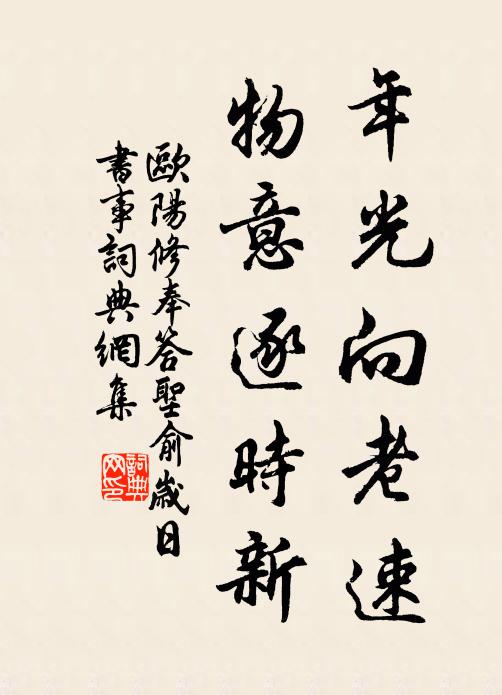 年光向老速
物意逐時新
歐陽修奉答聖俞歲日
書事詞典網集
詞典
网印